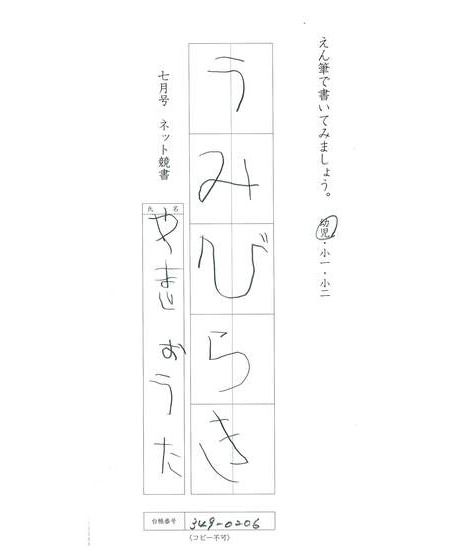 えん筆で書いてみましょう。
幼児・小一・小二
うみびらき
七月号 ネット競書
氏名
やまじ おうた
台帳番号 349-0206
(コピー不可)